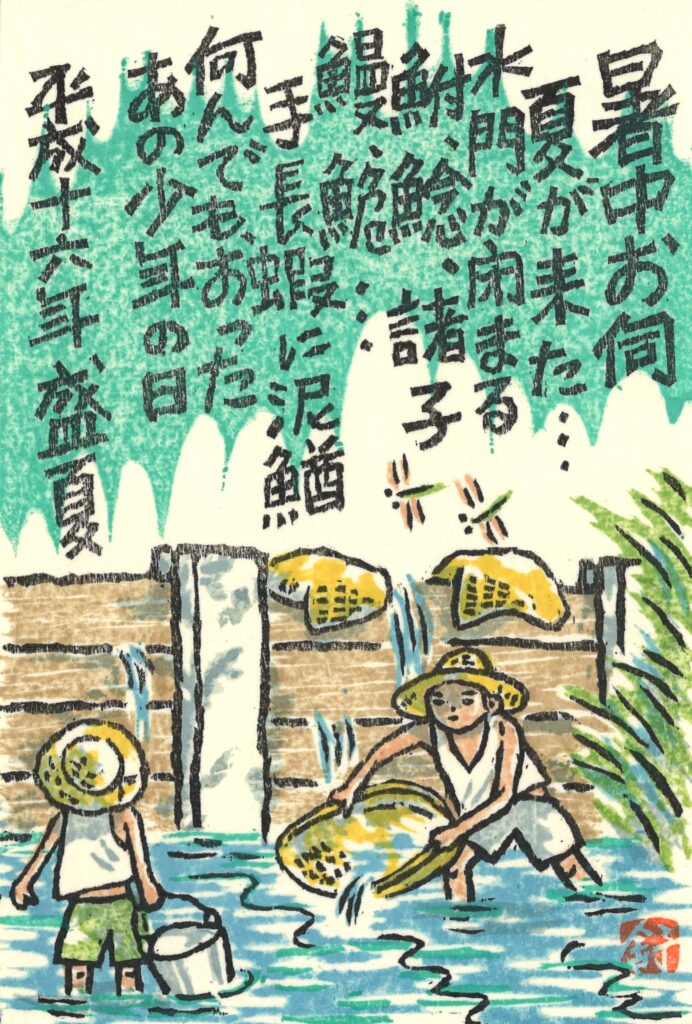 暑中お伺
夏が来た…
水門が閉まる
鮒、鯰、諸子
鰻、鮠…
手長蝦に泥鰌
何んでも、おった
あの少年の日
平成十六年 盛夏